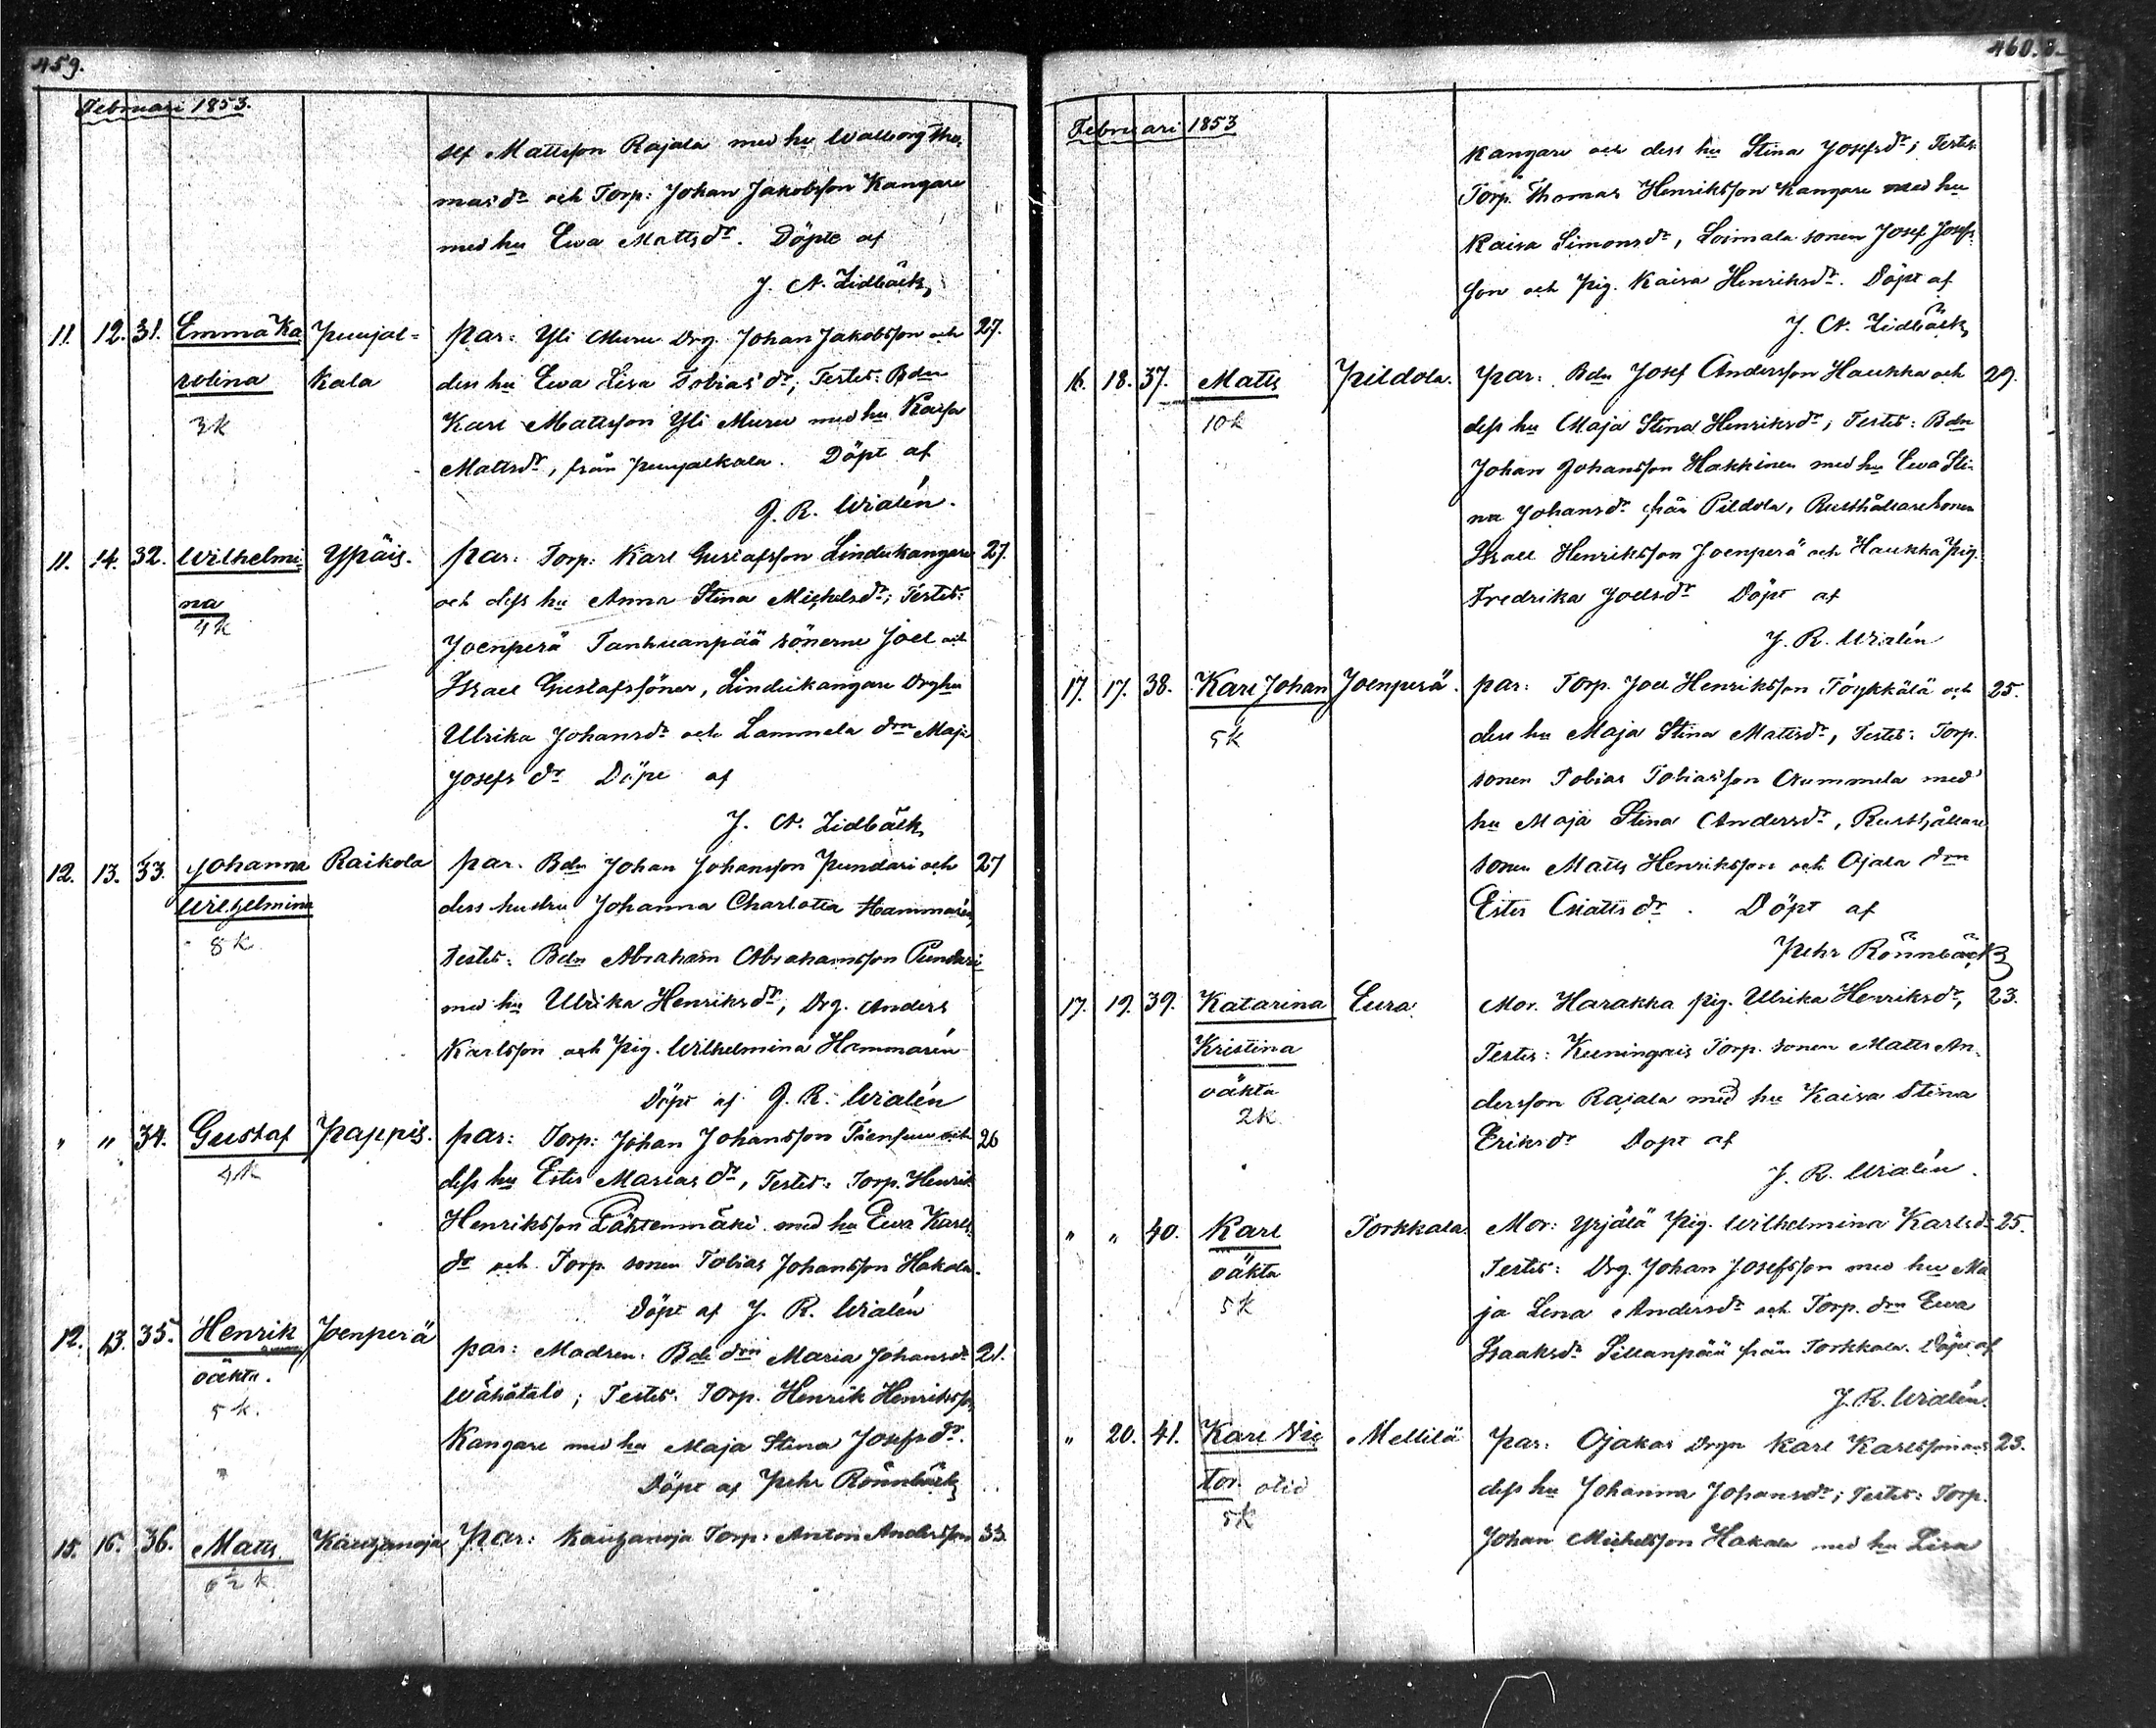 459.
Februari 1853.
sef Mattsson Rajala med hu Walborg Tho-
masdr och Torp: Johan Jakobsson Kangare
med hu Ewa Mattsdr. Döpte af
J. A. Lidbäck,
11. 12. 31. Emma Ka Punjal= par: Yli Muru Drg. Johan Jakobsson och 27.
rolina kala dess hu Ewa Lisa Tobiasdr; Testes: Bdn
3k Karl Mattsson Yli Muru med hu Kaisa
Mattsdr, från Punjalkala. Döpt af
J. R. Widlén.
11. 14. 32. Wilhelmi- Ypäis. par: Torp: Karl Gustafsson Lindukangare 27.
na och dess hu Anna Stina Michelsdr; Testes:
4k
Joenperä Tanhuanpää sönerne Joel och
Israel Gustafssöner, Lindukangare Drg hu
Ulrika Johansdr och Lammela drn Maja
Josefsdr Döpt af
J. A. Lidbäck
12. 13. 33. Johanna Raikola par. Bdn Johan Johansson Pundari och 27
Wilhelmina dess hustru Johanna Charlotta Hammarén,
8k
testes: Bdn Abraham Abrahamsson Pundari
med hu Ulrika Henriksdr, Drg. Anders
Karlsson och Pig. Wilhelmina Hammarén
Döpt af J. R. Widlén
" " 34. Gustaf Pappis. par: Torp: Johan Johansson och 26
4k dess hu Ester Mariasdr, Testes: Torp. Henrik
Henriksson med hu Ewa Karls-
dr och Torp. sonen Tobias Johansson Hakala.
Döpt af J. R. Widlén
12. 13. 35. Henrik Joenperä par: Madren. Bde drn Maria Johansdr 21.
oäkta. Wähätalo; Testes: Torp. Henrik Henriksson
5k. Kangare med hu Maja Stina Josefsdr.
Döpt af Pehr Rönnbäck
15. 16. 36. Matts Kautzanoja par: Kautzanoja Torp: Anton Andersson 33.
6½ k
460.
Februari 1853
Kangare och dess hu Stina Josefsdr; Testes:
Torp. Thomas Henriksson Kangare med hu
Kaisa Simonsdr, Loimala sonen Josef Josefs-
son och Pig. Kaisa Henriksdr. Döpt af
J. A. Lidbäck
16. 18. 37. Matts Pildola. par: Bdn Josef Andersson Haukka och 29.
10k dess hu Maja Stina Henriksdr; Testes: Bdn
Johan Johansson Hakkinen med hu Ewa Sti-
na Johansdr från Pildola, Rusthållaresonen
Israel Henriksson Joenperä och Haukka Pig.
Fredrika Joelsdr Döpt af
J. R. Widlén
17. 17. 38. Karl Johan Joenperä. par: Torp. Joel Henriksson Töykkälä och 25.
5k dess hu Maja Stina Mattsdr, Testes: Torp.
sonen Tobias Tobiasson Nummela med
hu Maja Stina Andersdr, Rusthållare
sonen Matts Henriksson och Ojala drn
Ester Mattsdr. Döpt af
Pehr Rönnbäck
17. 19. 39. Katarina Eura. Mor. Harakka pig. Ulrika Henriksdr, 23.
Kristina Testes: Kuningais Torp. sonen Matts An-
oäkta dersson Rajala med hu Kaisa Stina
2k. Eriksdr Döpt af
J. R. Widlén.
" " 40. Karl Torkkala. Mor: Yrjälä Pig. Wilhelmina Karlsdr 25.
oäkta Testes: Drg. Johan Josefsson med hu Ma
5k ja Lena Andersdr och Torp. drn Ewa
Isaaksdr Sillanpää från Torkkala. Döpt af
J. R. Widlén.
" 20. 41. Karl Vic Mellilä par: Ojakas Drgn Karl Karlsson och 23.
tor. dess hu Johanna Johansdr; Testes: Torp.
5k Johan Michelsson Hakala med hu Lisa